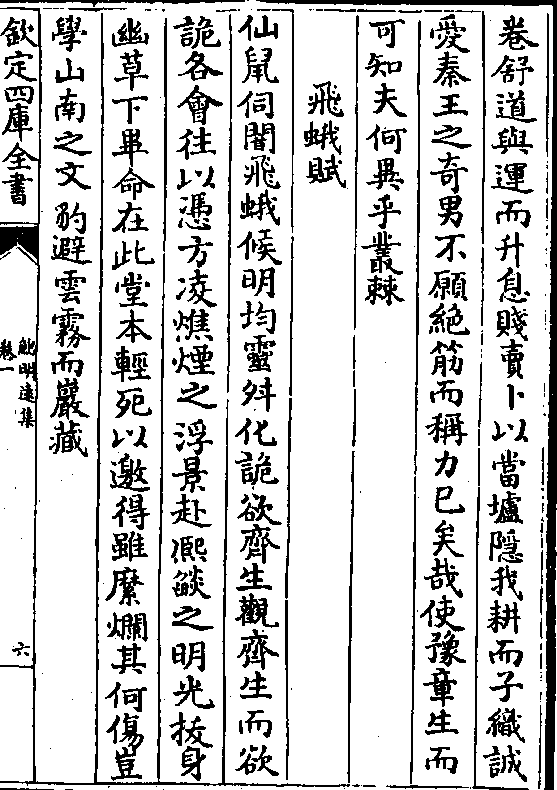 卷舒道與運而升息賤賣卜以當壚隱我耕而子織誠
愛秦王之奇男不願絕筋而稱力已矣哉使豫章生而
可知夫何異乎叢棘
飛蛾賦
仙鼠伺闇飛蛾候明均靈舛化詭欲齊生觀齊生而欲
詭各會往以憑方凌燋煙之浮景赴熈燄之明光拔身
幽草下畢命在此堂本輕死以邀得雖糜爛其何傷豈
學山南之文豹避雲霧而巖藏
欽定四庫全書
鮑明遠集
卷一
六